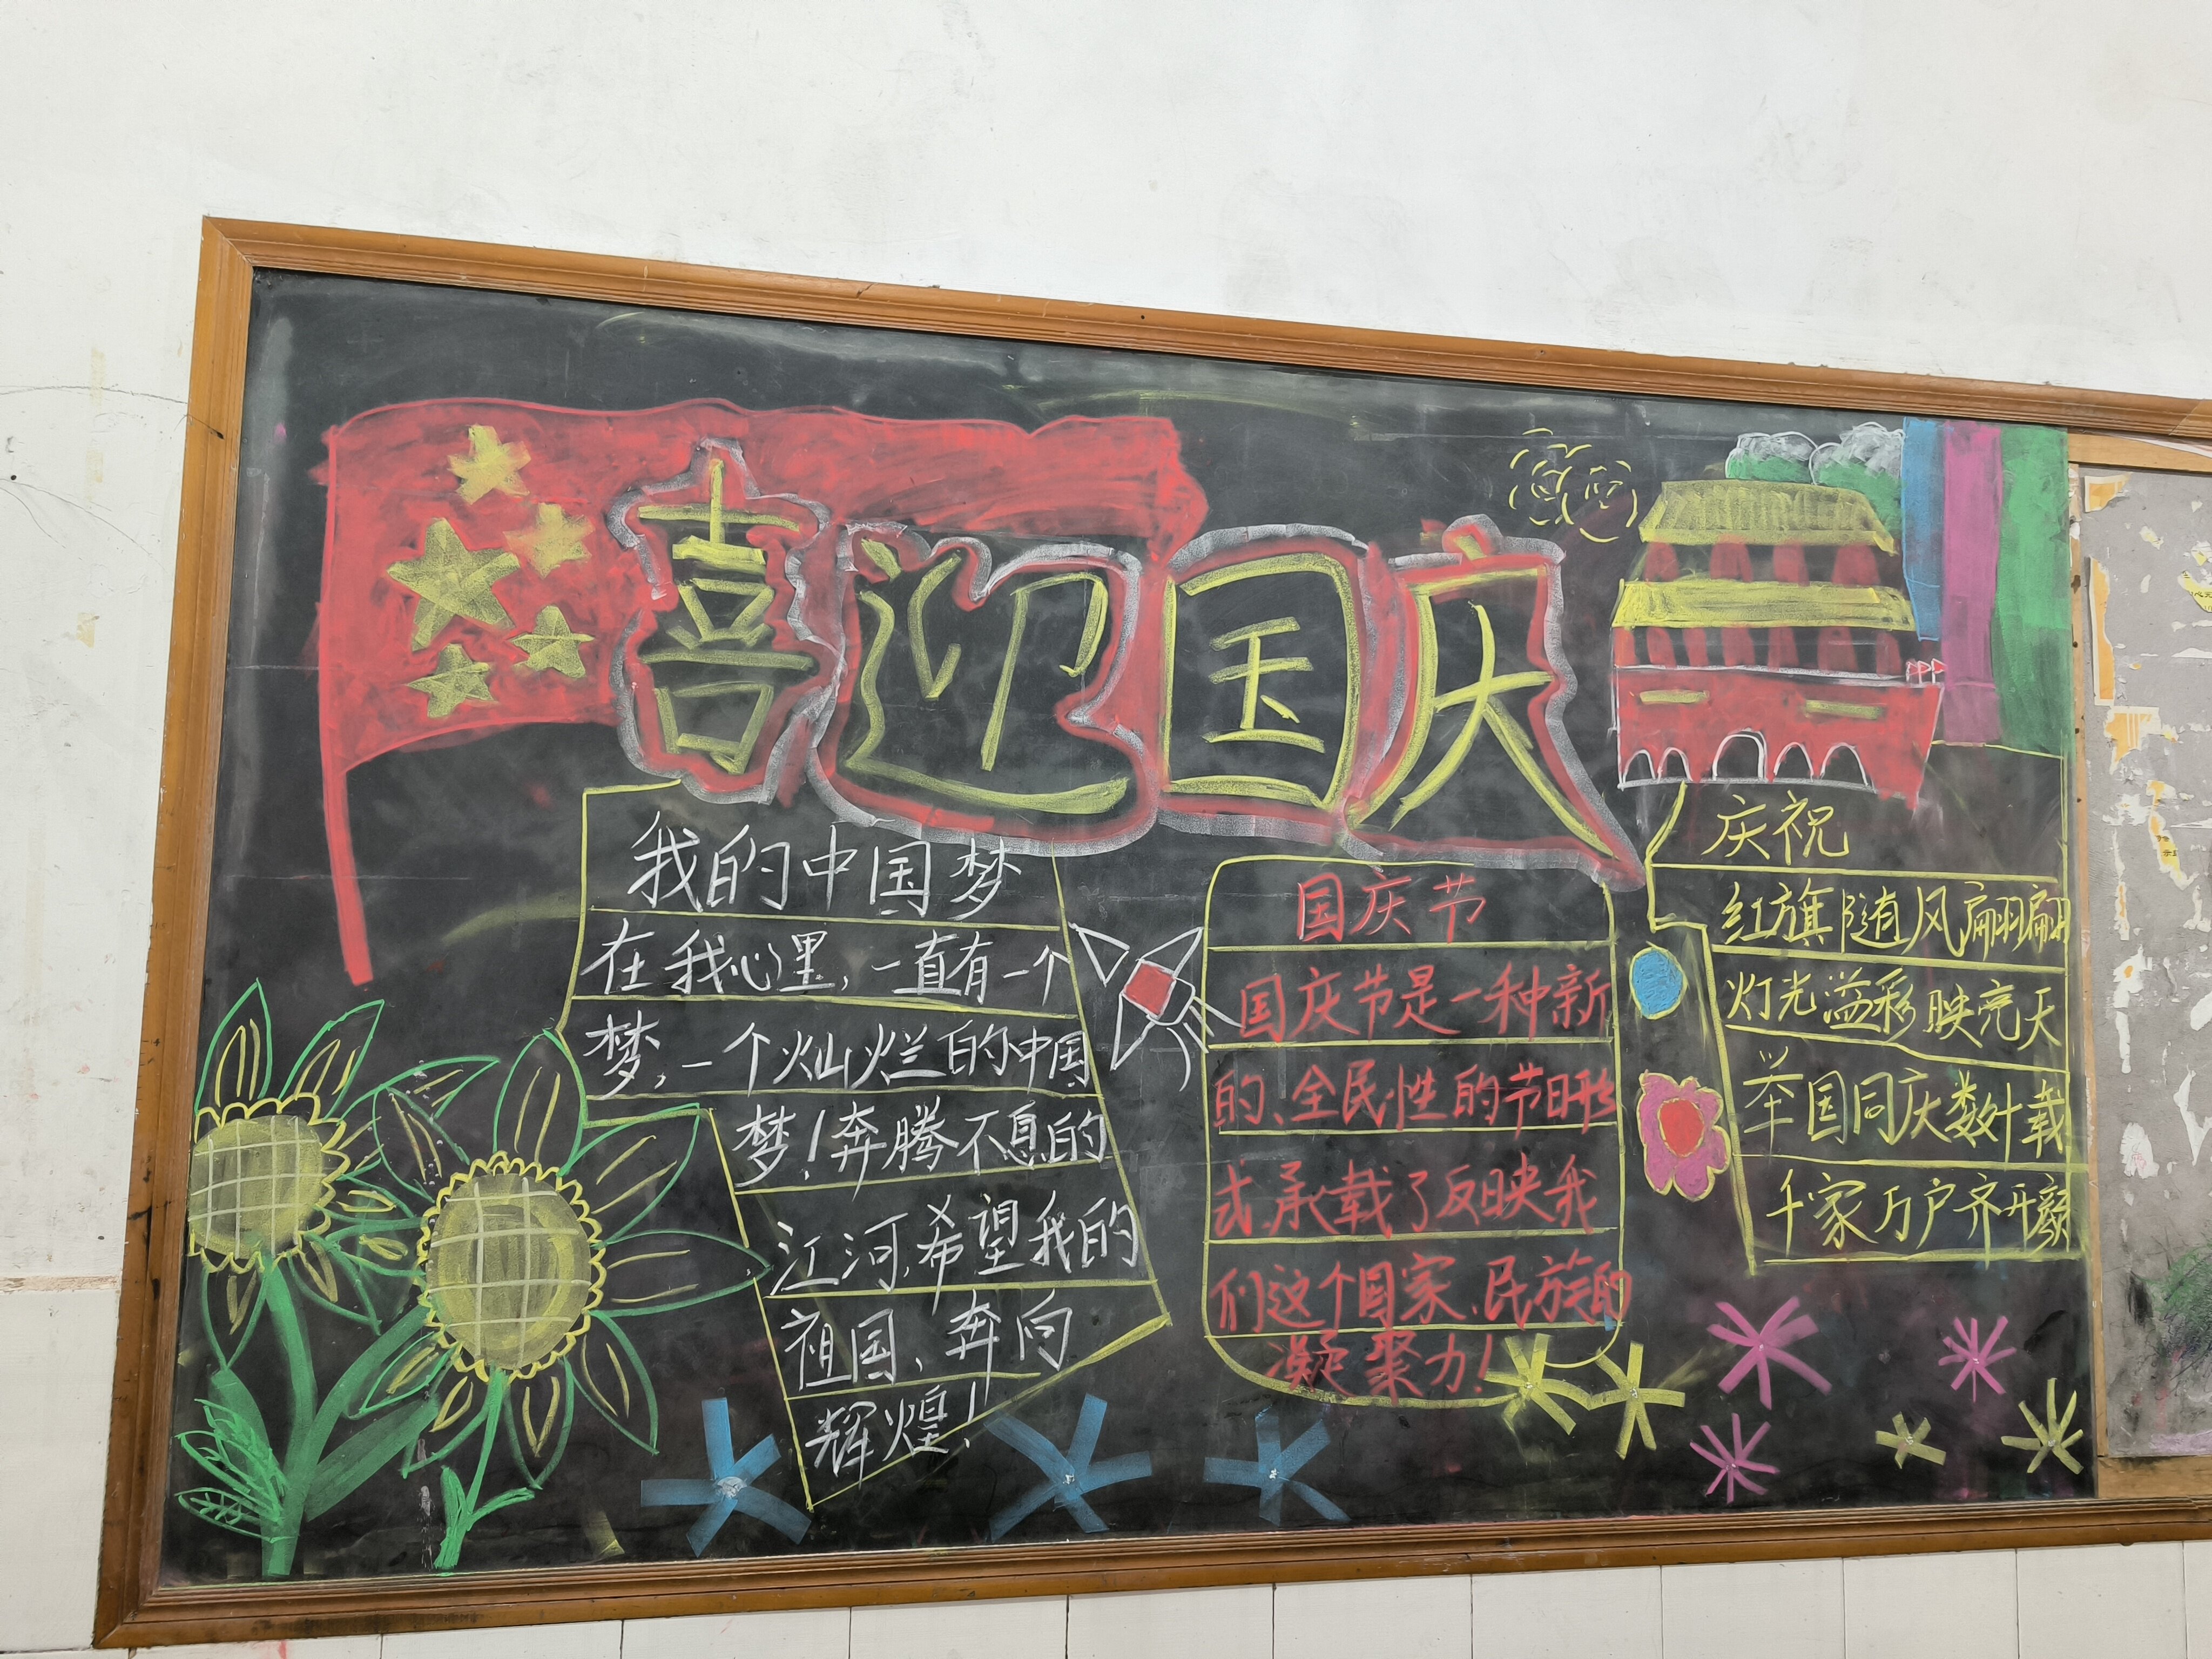 喜迎国庆
我的中国梦
在我心里,一直有一个
梦,一个灿烂的中国
梦!奔腾不息的
江河,希望我的
祖国、奔向
辉煌!
国庆节
国庆节是一种新
的、全民性的节日形
式,承载了反映我
们这个国家、民族的
凝聚力!
庆祝
红旗随风翩翩
灯光溢彩映亮天
举国同庆数计载
千家万户齐开颜